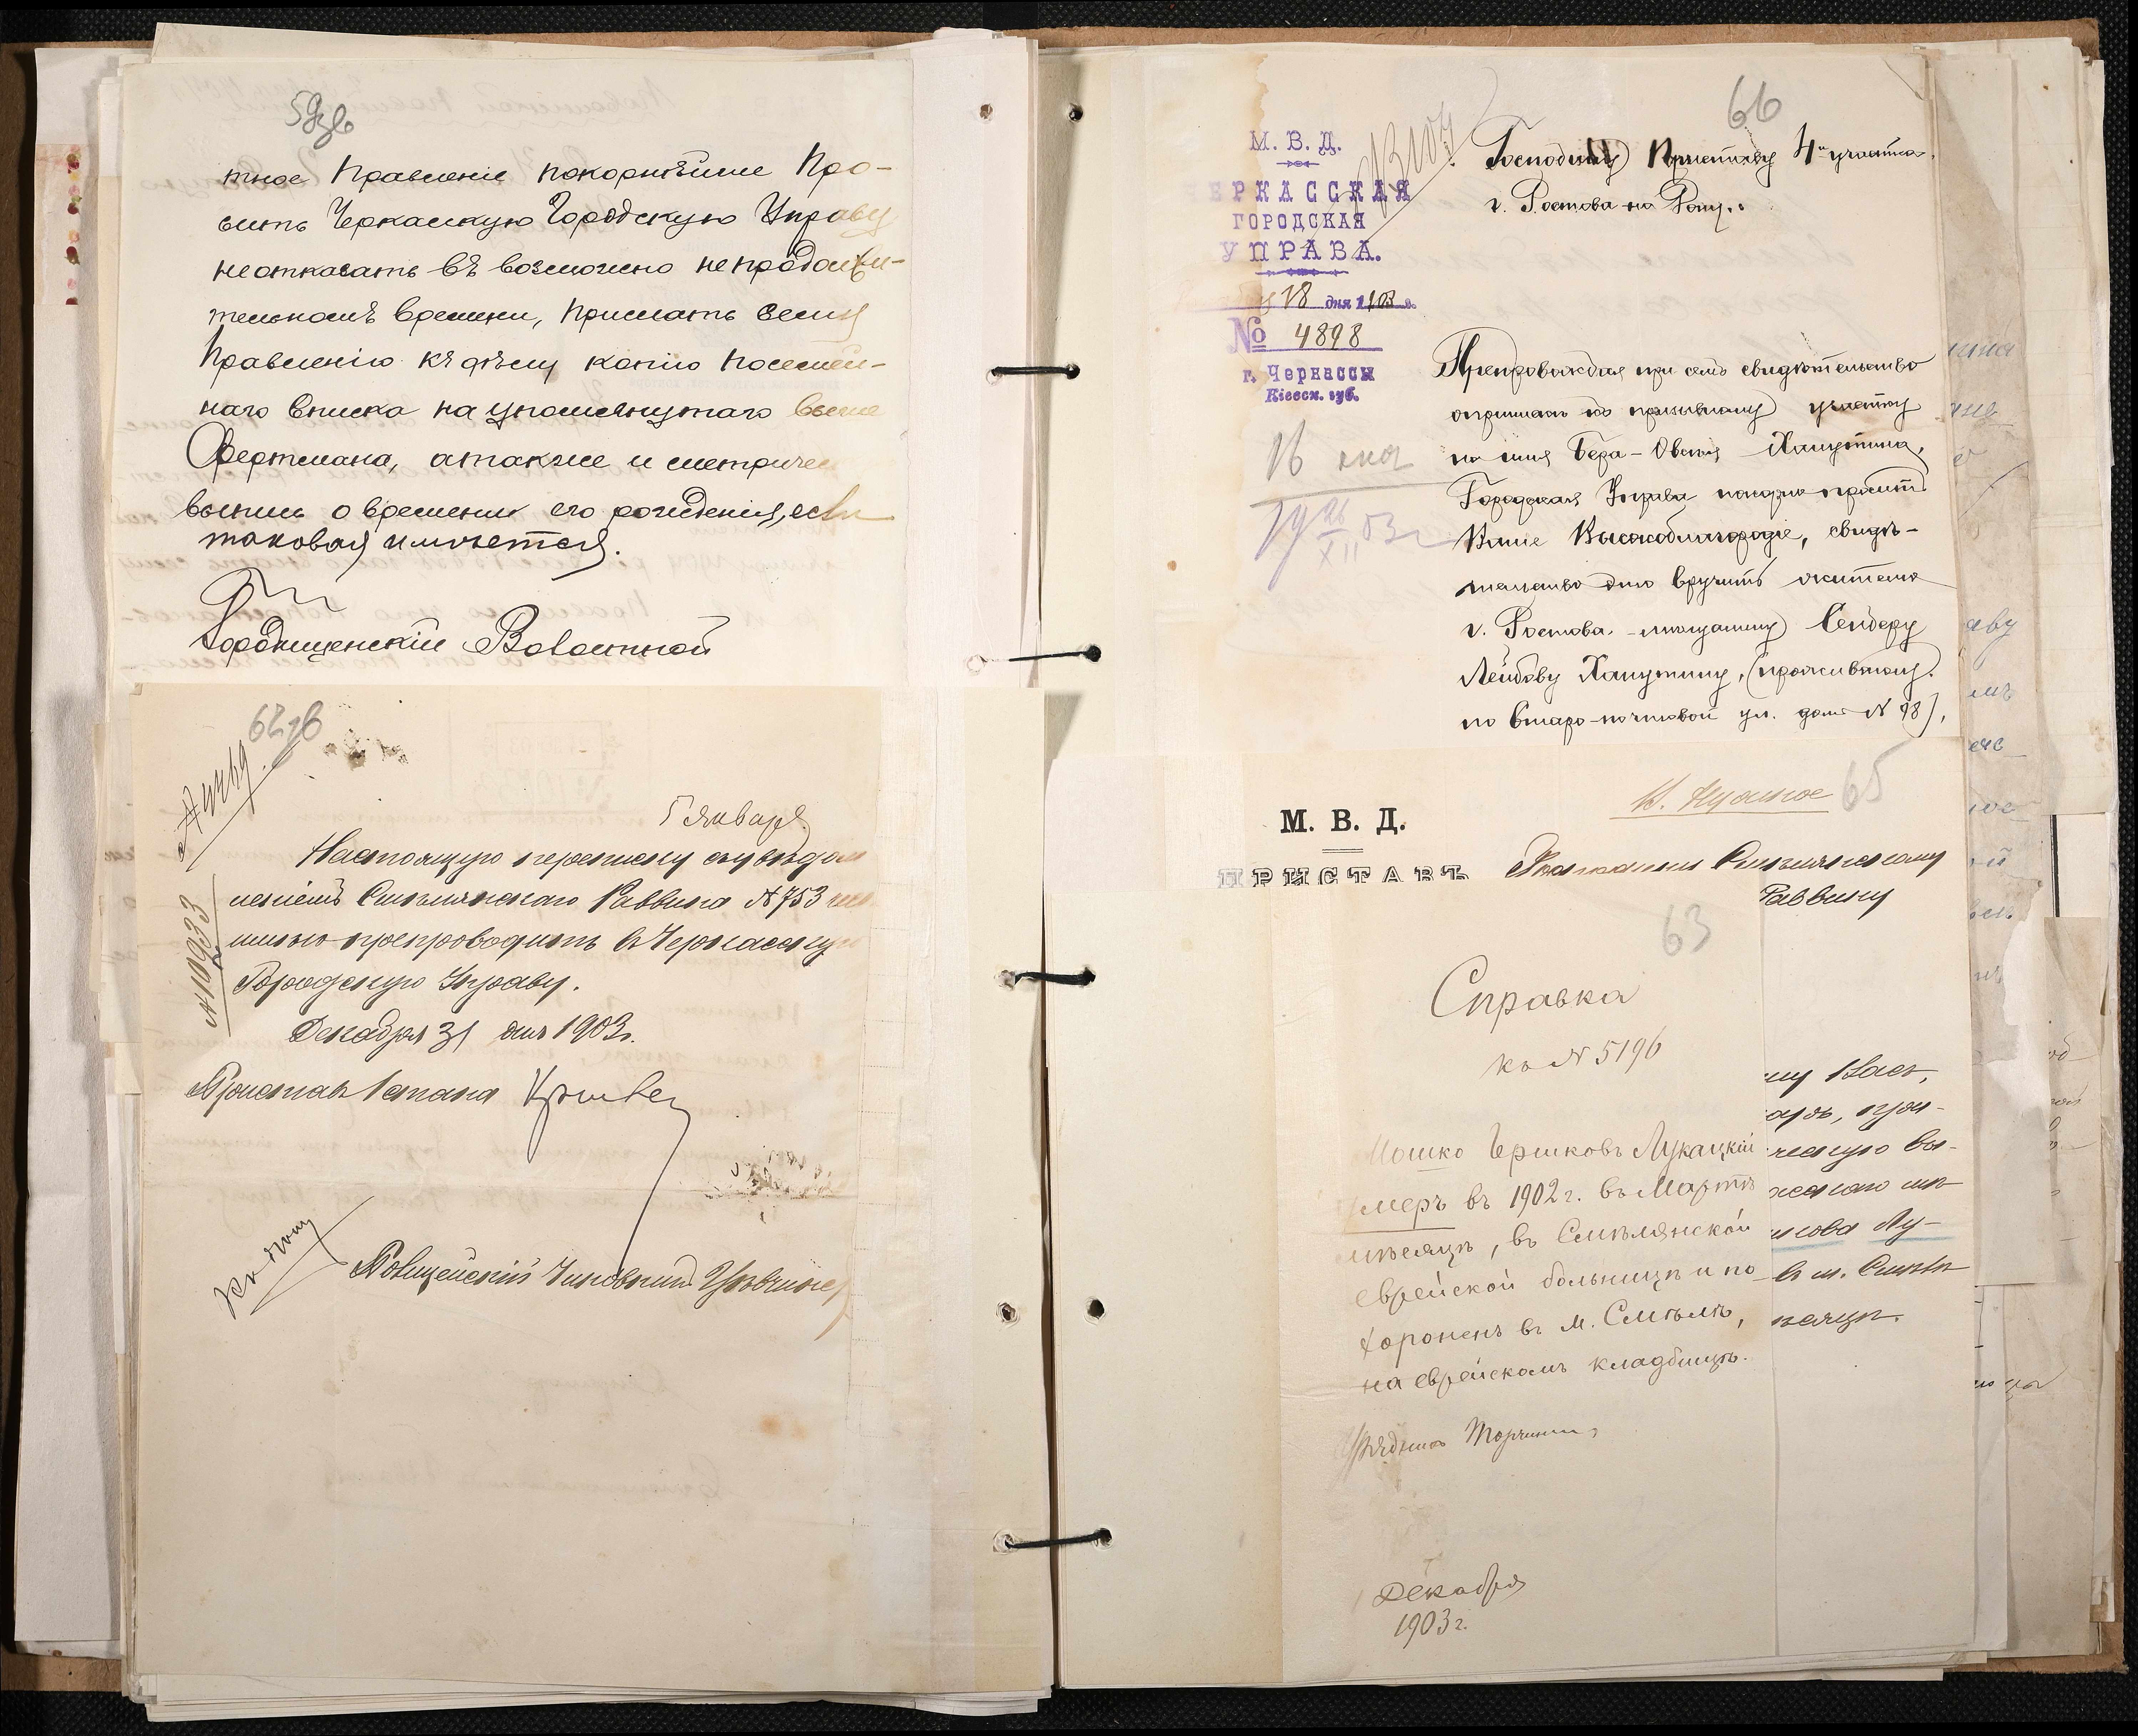 59 зв
тное Правленіе покорнѣйше про-
сить Черкасскую Городскую Управу
не отказать въ возможно непродолжи-
тельномъ времени, прислать сему
Правленію къ дѣлу копію посемей-
наго списка на упомянутаго выше
Фертмана, а также и метричес
выпись о времени его рожденія, если
таковая имѣется.
Городищенскій Волостной
62 зв
№ 4249.
5 Января
Настоящую переписку съ увѣдом
леніемъ Смѣлянскаго Раввина № 753
препроводить въ Черкасскую
Городскую Управу.
№ 10933
Декабря 31 дня 1903 г.
Приставъ 1 стана
Къ дѣлу
Полицейскій Урядникъ
66
М. В. Д.
ЧЕРКАССКАЯ
ГОРОДСКАЯ
УПРАВА.
18 дня 1903 г.
№ 4898
г. Черкассы
Кіевск. губ.
Господину Приставу 4го участка
г. Ростова на Дону.
Препровождая при семъ свидѣтельство
о припискѣ къ призывному участку
на имя Бера-Овсея Хапутина,
Городская Управа покорно проситъ
Ваше Высокоблагородіе, свидѣ-
тельство это вручить жителю
г. Ростова мѣщанину Сендеру
Лейбову Хапутину, (прожив.
по Старо-почтовой ул. домъ № 98),
65
М. В. Д.
ПРИСТАВЪ
Смѣлянскому
Раввину
63
Справка
къ № 5196
Мошко Гершковъ Лукацкій
умеръ въ 1902 г. въ Мартѣ
мѣсяцѣ, въ Смѣлянской
еврейской больницѣ и по
хороненъ въ м. Смѣлѣ,
на еврейскомъ кладбищѣ.
Урядникъ
Декабря
1903 г.
Васъ,
Лу-
въ м. Смѣлѣ